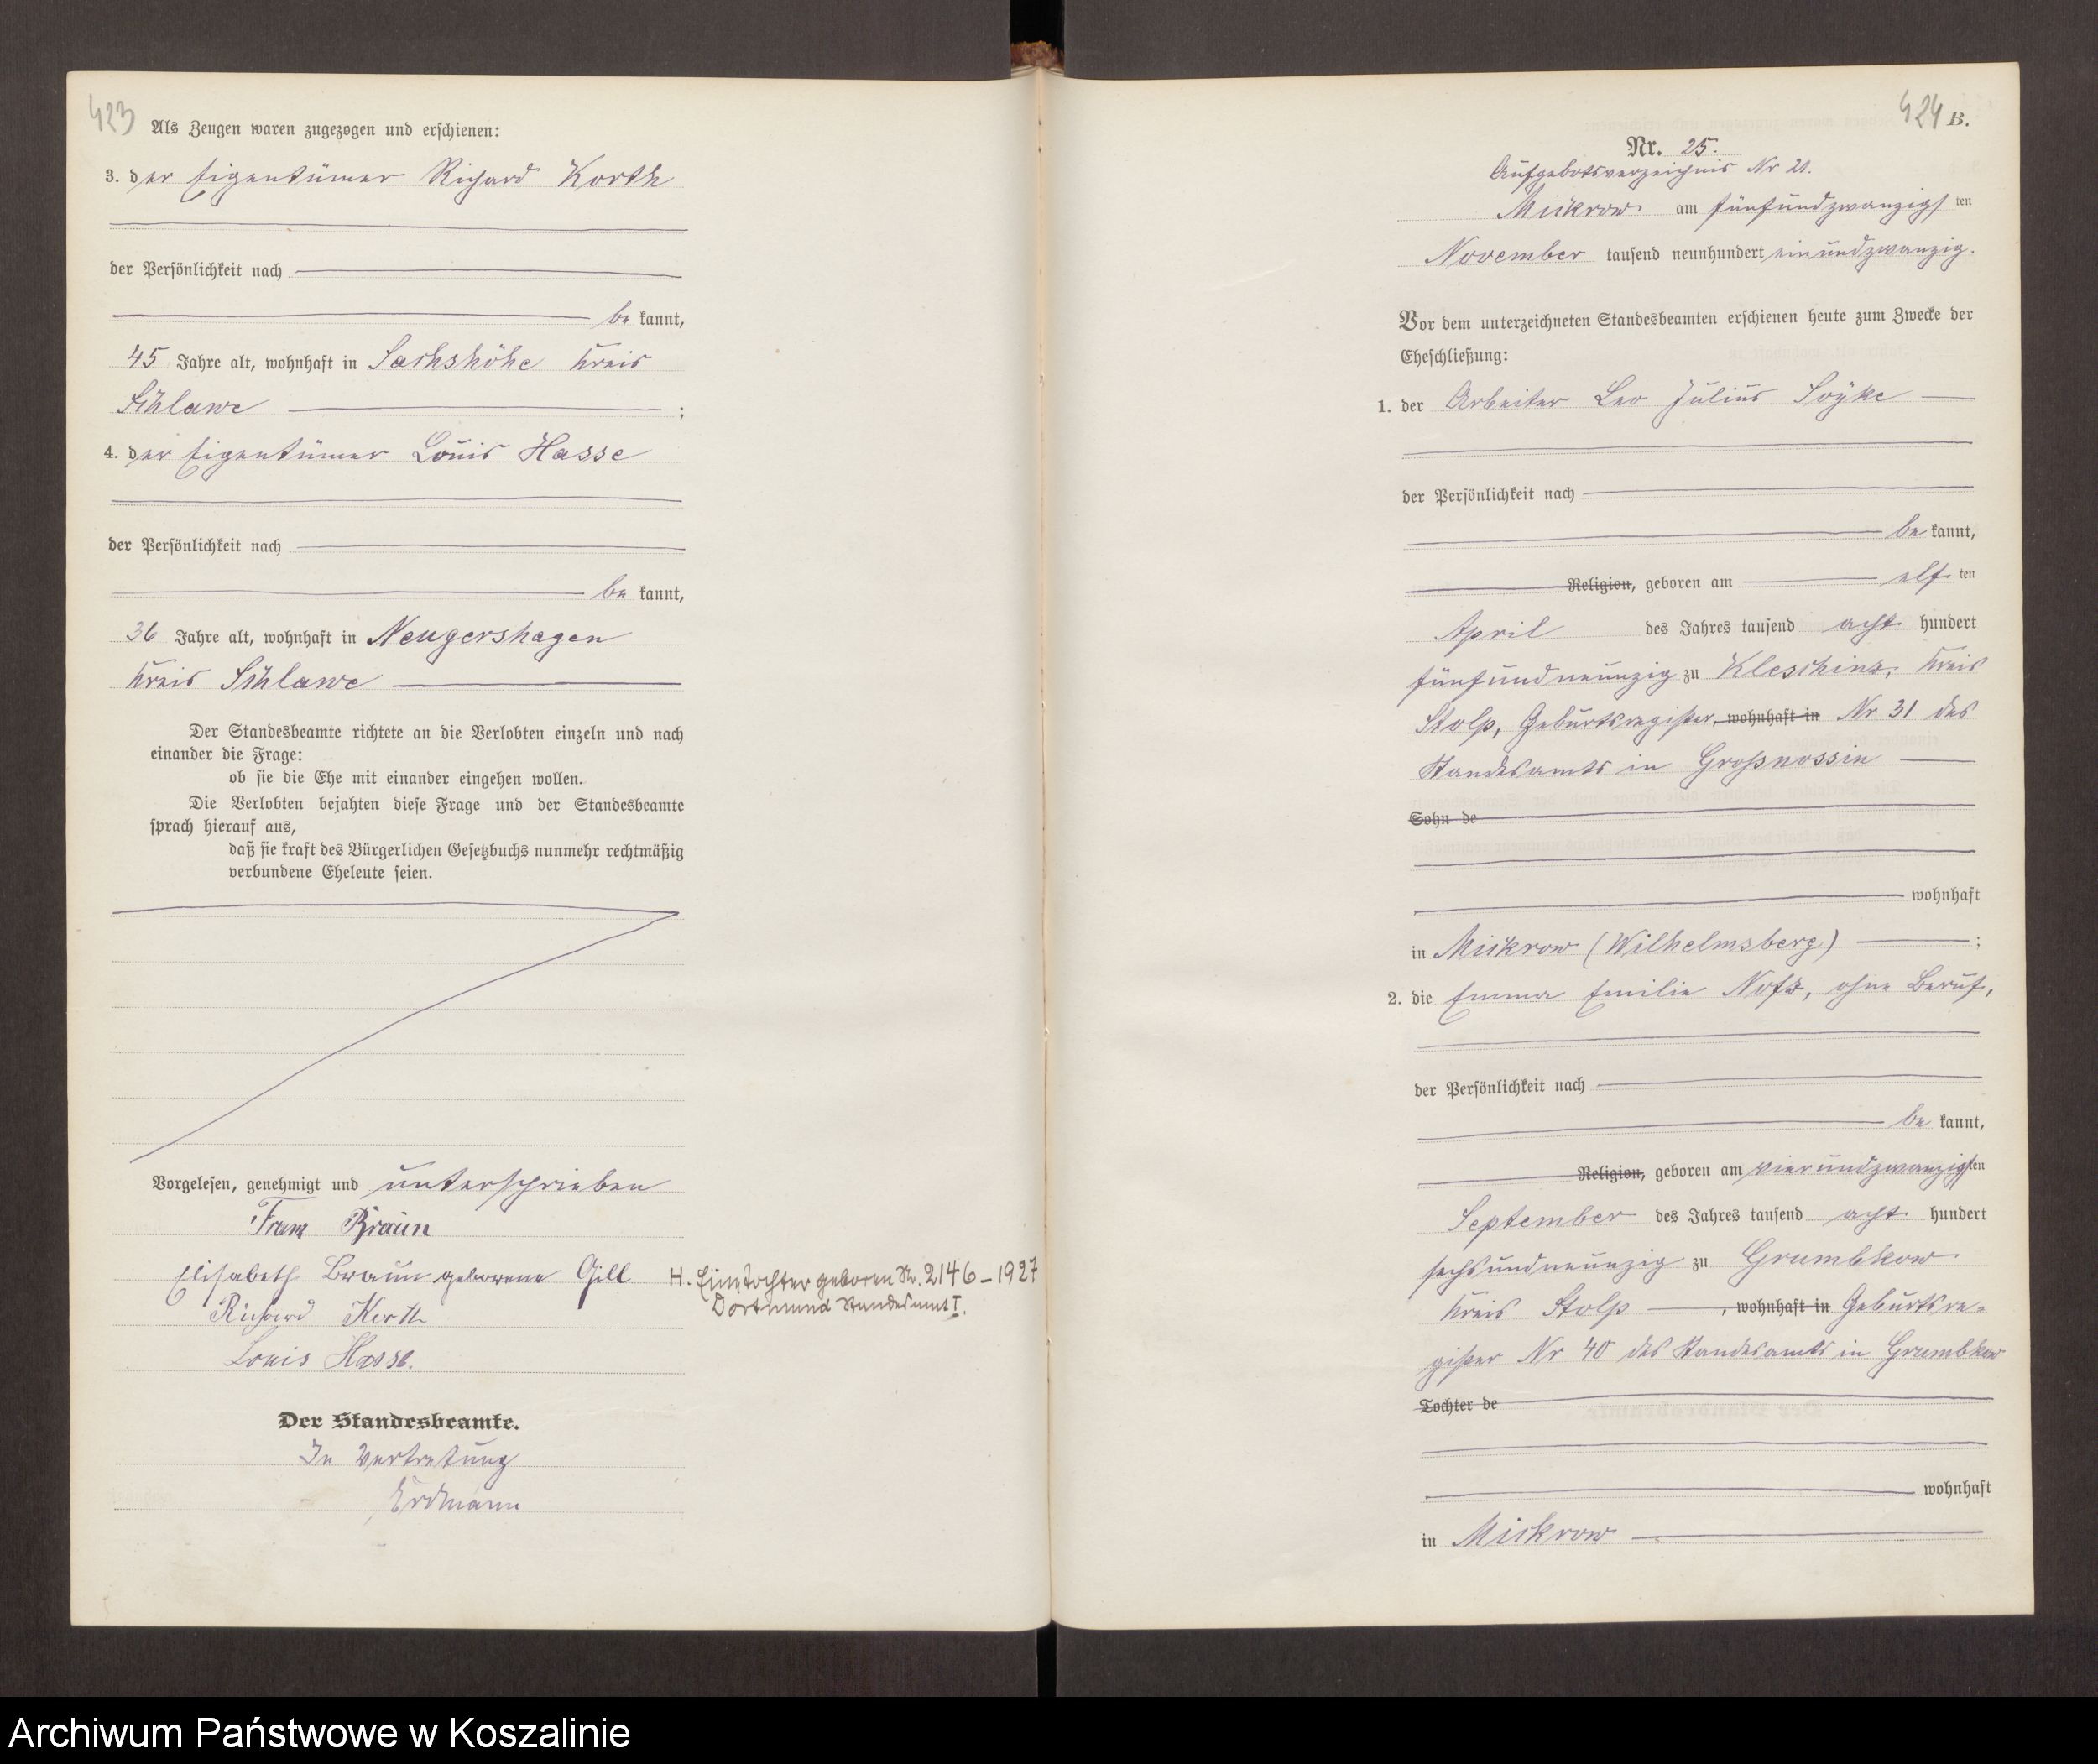 423
Als Zeugen waren zugezogen und erschienen:
3. der Eigentümer Richard Korth
der Persönlichkeit nach
be kannt,
45 Jahre alt, wohnhaft in Sachshöhe Kreis
Schlawe ;
4. der Eigentümer Louis Hasse
der Persönlichkeit nach
be kannt,
36 Jahre alt, wohnhaft in Neugershagen
Kreis Schlawe
Der Standesbeamte richtete an die Verlobten einzeln und nach
einander die Frage:
ob sie die Ehe mit einander eingehen wollen.
Die Verlobten bejahten diese Frage und der Standesbeamte
sprach hierauf aus,
daß sie kraft des Bürgerlichen Gesetzbuchs nunmehr rechtmäßig
verbundene Eheleute seien.
Vorgelesen, genehmigt und unterschrieben
Franz Braun
Elisabeth Braun geborene Gill
Richard Korth
Louis Hasse.
H. Eine Tochter geboren Nr. 2146–1927
Dortmund Standesamt I.
Der Standesbeamte.
In Vertretung
Erdmann
424 B.
Nr. 25.
Aufgebotsverzeichnis Nr 21.
Mickrow am fünfundzwanzigsten
November tausend neunhundert einundzwanzig.
Vor dem unterzeichneten Standesbeamten erschienen heute zum Zwecke der
Eheschließung:
1. der Arbeiter Leo Julius Soyke
der Persönlichkeit nach
be kannt,
Religion, geboren am elf ten
April des Jahres tausend acht hundert
fünfundneunzig zu Kleschinz, Kreis
Stolp, Geburtsregister, wohnhaft in Nr 31 des
Standesamts in Großnossin
Sohn de
wohnhaft
in Mickrow (Wilhelmsberg) ;
2. die Emma Emilie Nofz, ohne Beruf,
der Persönlichkeit nach
be kannt,
Religion, geboren am vierundzwanzigsten
September des Jahres tausend acht hundert
sechsundneunzig zu Grumbkow
Kreis Stolp , wohnhaft in Geburtsre-
gister Nr 40 des Standesamts in Grumbkow
Tochter de
wohnhaft
in Mickrow
Archiwum Państwowe w Koszalinie